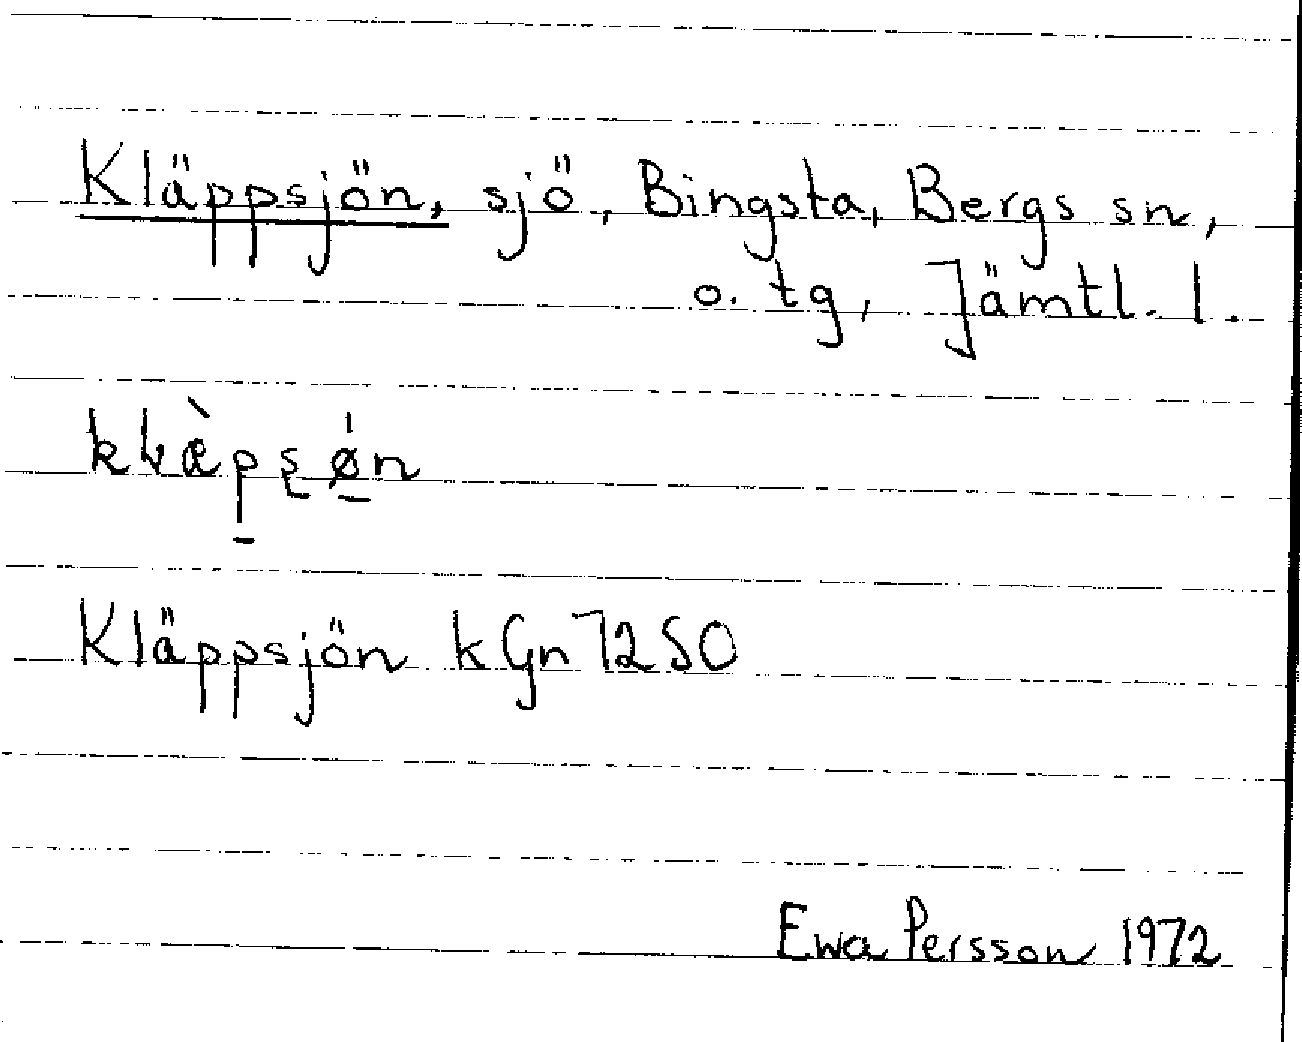 Kläppsjön, sjö, Bingsta, Bergs sn,
o. tg, Jämtl. l.
kɫæ̀p̱ʂǿ̱n
Kläppsjön kGn 7250
Ewa Persson 1972